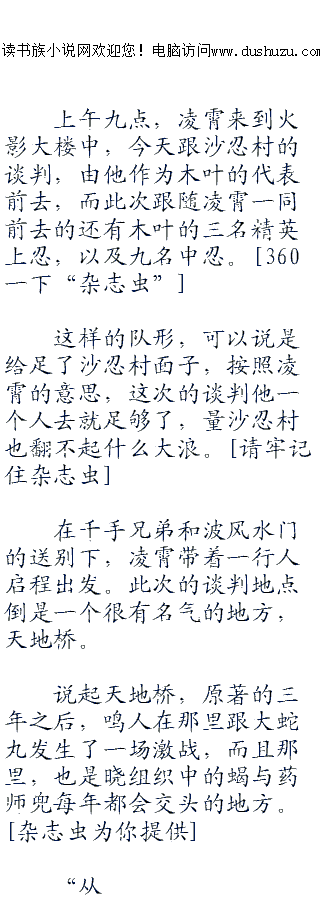 读书族小说网欢迎您！电脑访问www.dushuzu.com
上午九点，凌霄来到火
影大楼中，今天跟沙忍村的
谈判，由他作为木叶的代表
前去，而此次跟随凌霄一同
前去的还有木叶的三名精英
上忍，以及九名中忍。[360
一下“杂志虫”]
这样的队形，可以说是
给足了沙忍村面子，按照凌
霄的意思，这次的谈判他一
个人去就足够了，量沙忍村
也翻不起什么大浪。[请牢记
住杂志虫]
在千手兄弟和波风水门
的送别下，凌霄带着一行人
启程出发。此次的谈判地点
倒是一个很有名气的地方，
天地桥。
说起天地桥，原著的三
年之后，鸣人在那里跟大蛇
九发生了一场激战，而且那
里，也是晓组织中的蝎与药
师兜每年都会交头的地方。
[杂志虫为你提供]
“从